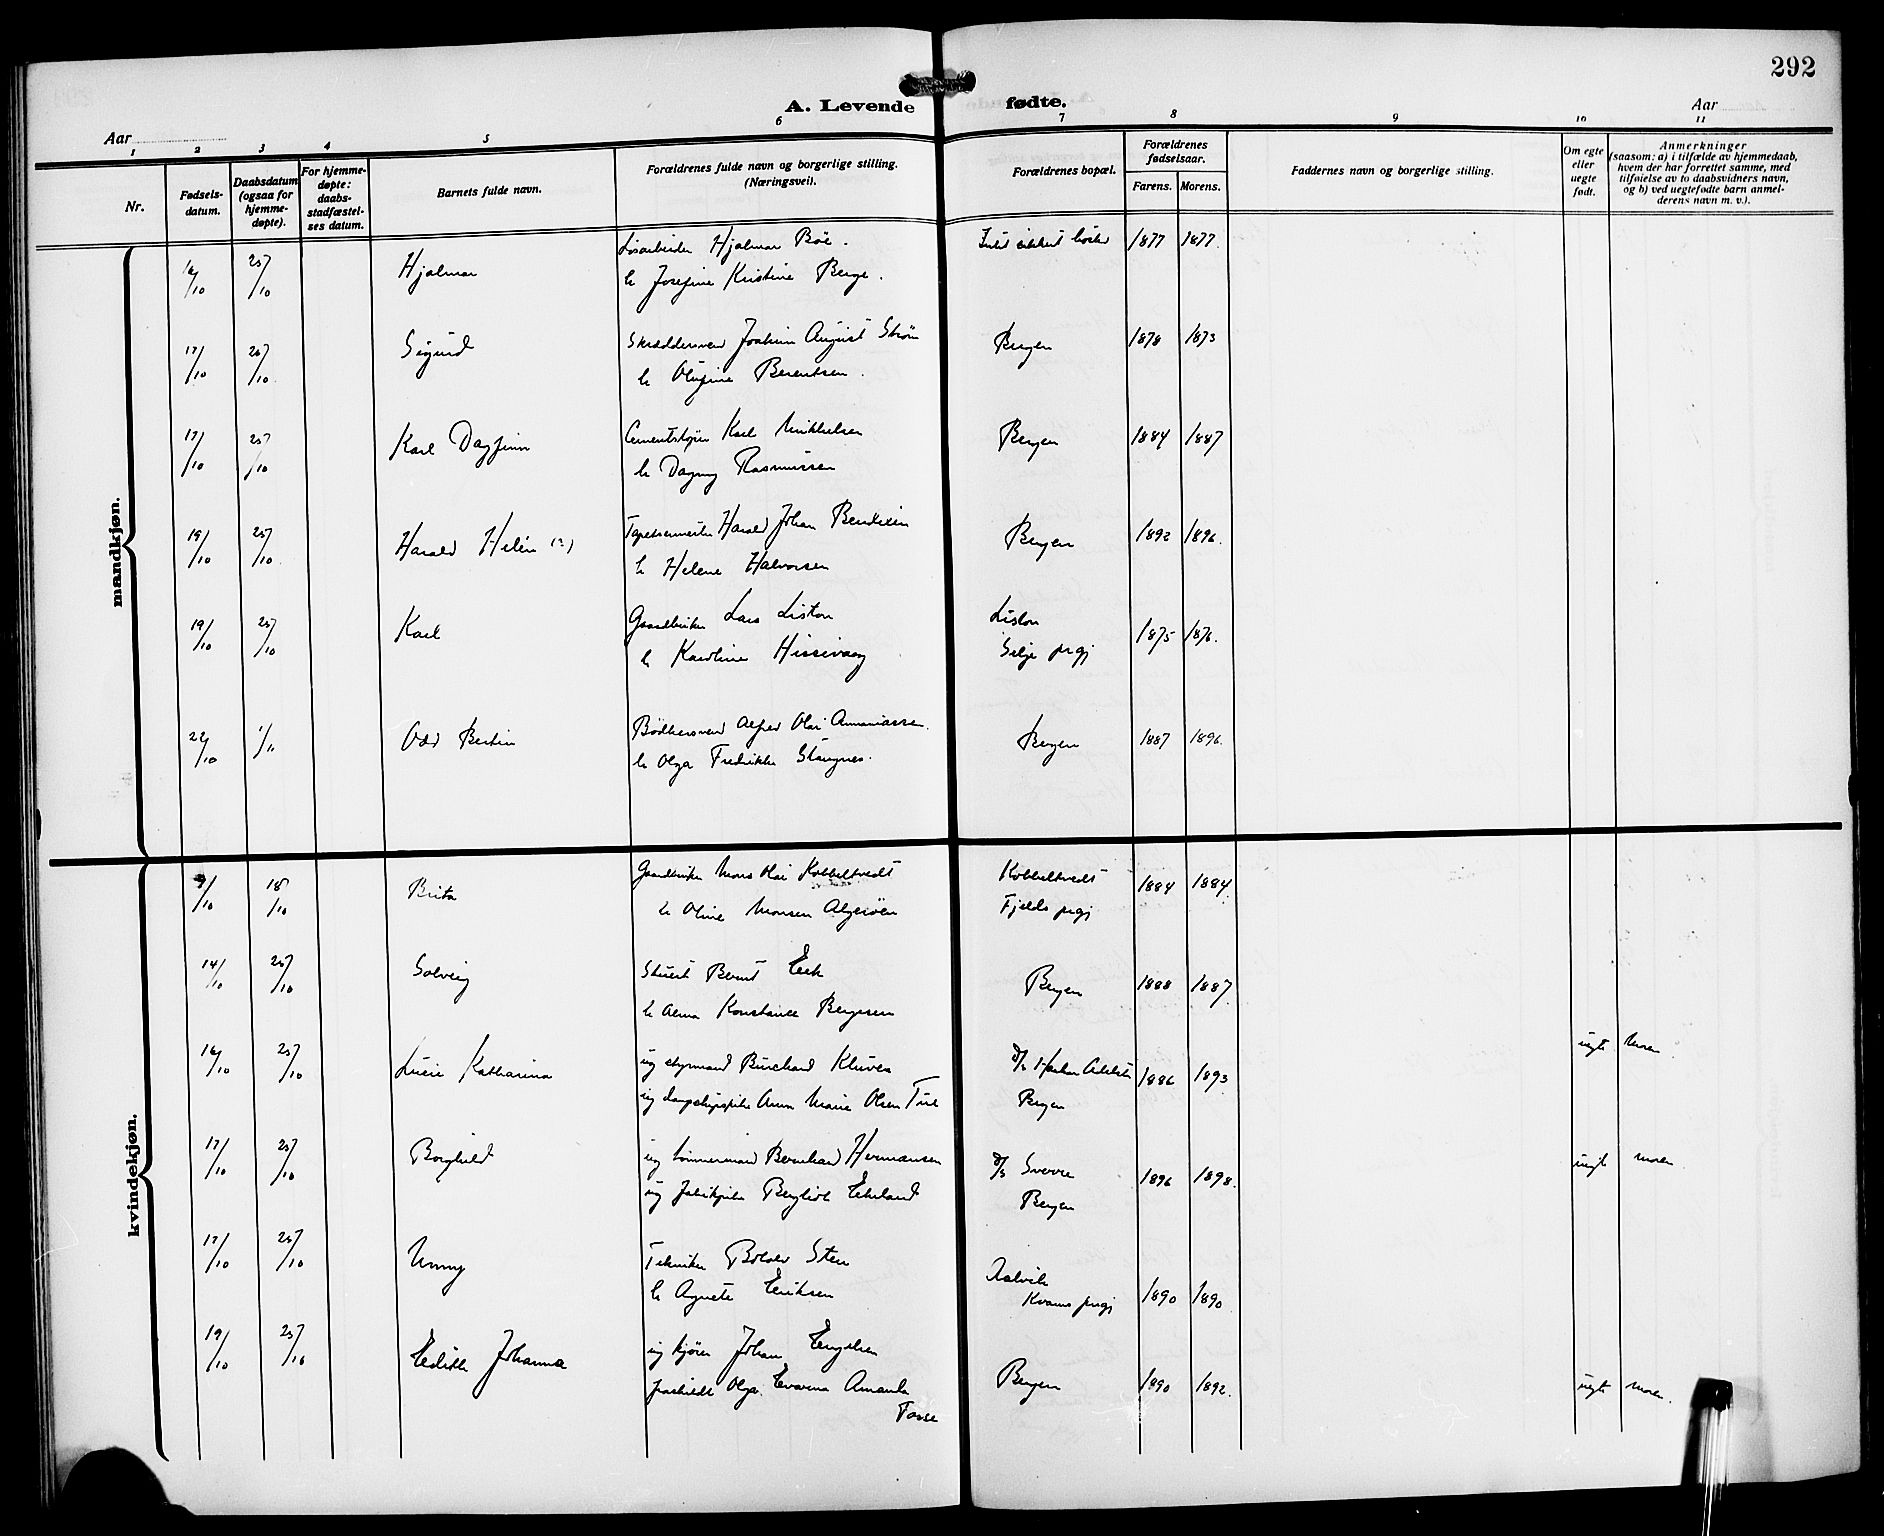 292
A. Levende fødte.
Aar
Aar
1 2 3 4 5 6 7 8 9 10 11
Nr.
Fødsels-
datum.
Daabsdatum
(ogsaa for
hjemme-
døpte).
For hjemme-
døpte:
daabs-
stadfæstel-
ses datum.
Barnets fulde navn.
Forældrenes fulde navn og borgerlige stilling.
(Næringsvei).
Forældrenes bopæl.
Forældrenes
fødselsaar.
Farens. Morens.
Faddernes navn og borgerlige stilling.
Om egte
eller
uegte
født.
Anmerkninger
(saasom: a) i tilfælde av hjemmedaab,
hvem der har forrettet samme, med
tilføielse av to daabsvidners navn,
og b) ved uegtefødte barn anmel-
derens navn m. v.).
mandkjøn.
Løsarbeider Hjalmar Böe. 1877 1877.
16/10 25/10 Hjalmar
h Josefine Kristine Berge.
17/10 25/10 Sigurd Skræddersvend Joakim August Strøm Bergen 1878 1873
h Olufine Berentsen.
17/10 25/10 Karl Dagfinn Karl Mikkelsen Bergen 1884 1887
h Dagny Rasmussen
19/10 25/10 Harald Helén (?) Tapetserermester Harald Johan Bendixen Bergen 1892 1896.
h Helene Halvorsen
19/10 25/10 Karl Gaardbruker Lars Liston Liston 1875 1876.
h Karoline Hissevaag Selje prgj
22/10 1/11 Odd Bertin Bødkersvend Alfred Olai Annaniassen. Bergen 1887 1896.
h Olga Fredrikke Stangnes.
kvindekjøn.
9/10 18/10 Brita Gaardbruker Mons Olai Kobbeltvedt Kobbeltvedt 1884 1884.
h Oline Monsen Algerøen Fjelds prgj
14/10 25/10 Solveig Stuert Bernt Eek Bergen 1888 1887.
h Alma Konstance Bergesen
16/10 25/10 Lucie Katharina ug styrmand Burchard Kluver d/s Haakon Adelsten 1886 1893 uegte Moren
ug Anna Marie Olsen Bergen
17/10 25/10 Borghild ug tømmermand Bernhard Hermansen d/s Sverre 1896 1898. uegte moren
ug Bergliot Ekeland Bergen
17/10 25/10 Unny Tekniker Sten Aalvik
h Agnete Eriksen Kvams prgj 1890 1890
19/10 25/10 Edith Johanna ug kjører Johan Engelsen Bergen 1890 1892. uegte moren.
fraskildt Olga Evarina Amanda